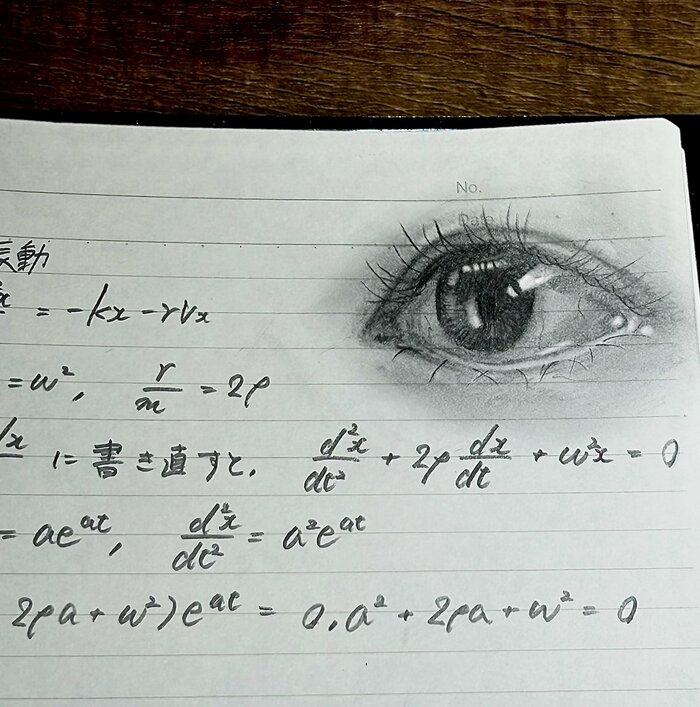 No.
Date
振動
= -kx - rVx
= w², r/m = 2ρ
dx に書き直すと, d²x/dt² + 2ρ dx/dt + w²x = 0
= ae^at, d²x/dt² = a²e^at
2ρa + w²)e^at = 0, a² + 2ρa + w² = 0